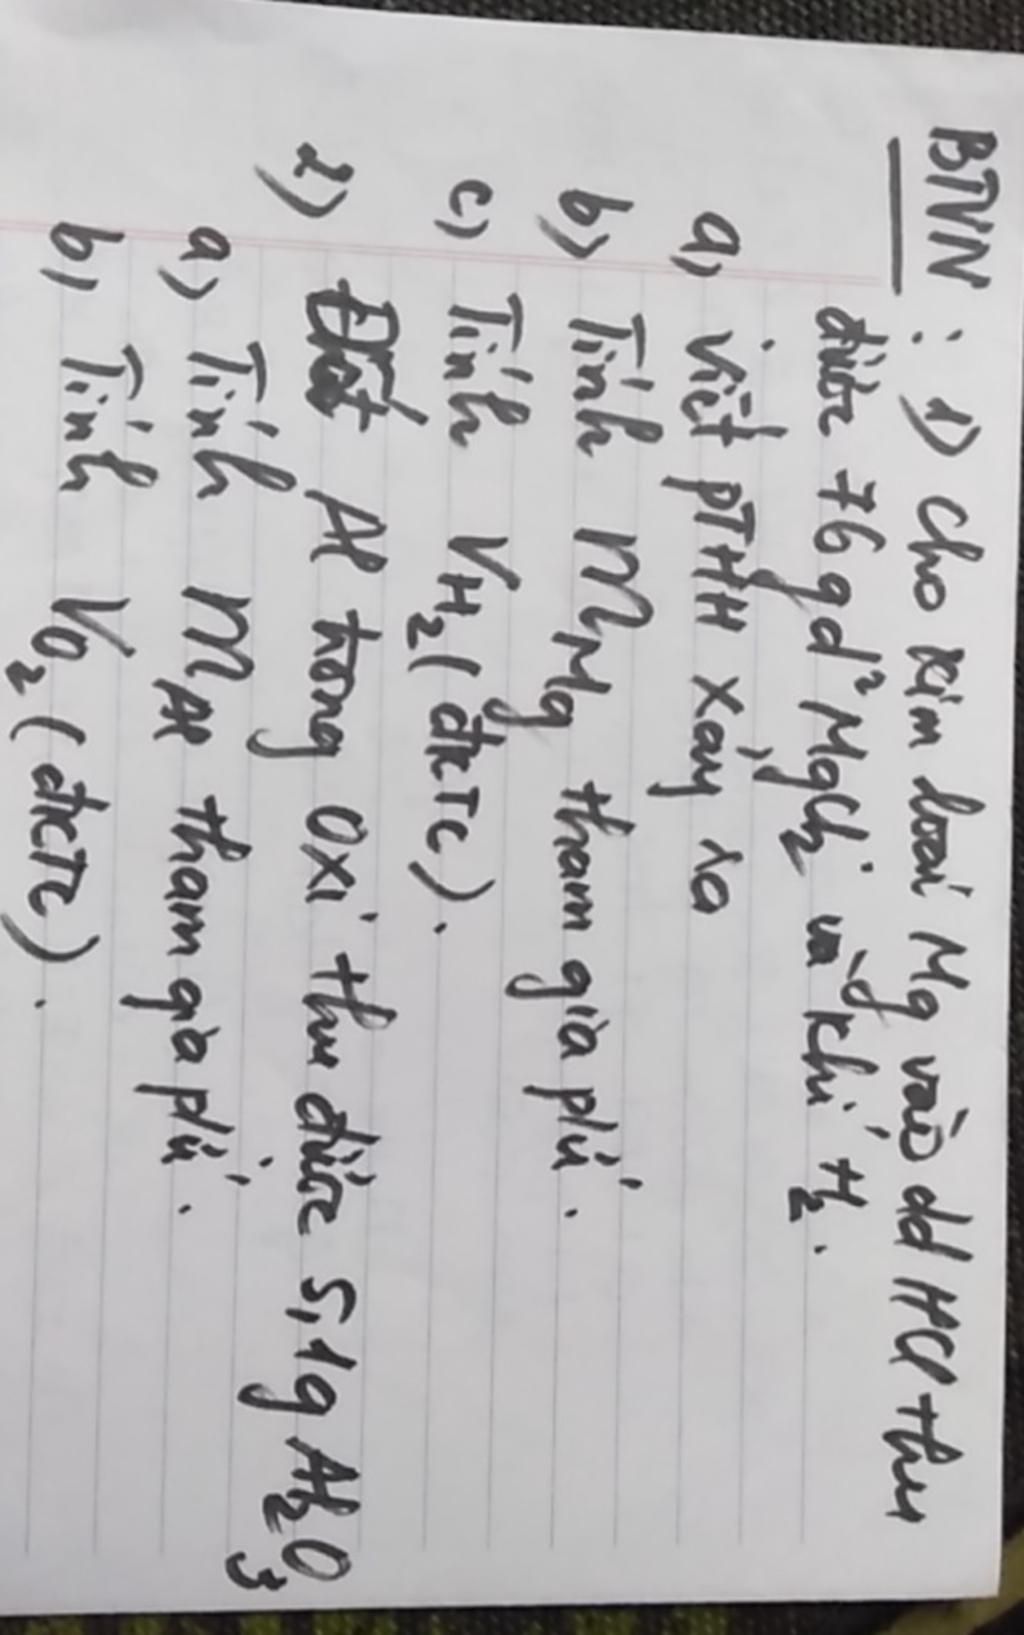 BTVN : 1) Cho kim loại Mg vào dd HCl thu
được 76 g d² MgCl₂ và khí H₂.
a) Viết PTHH xảy ra
b) Tính mMg tham gia pứ.
c) Tính VH₂ (đktc).
2) Đốt Al trong oxi thu được 5,1g Al₂O₃
a) Tính mAl tham gia pứ.
b) Tính VO₂ (đktc).